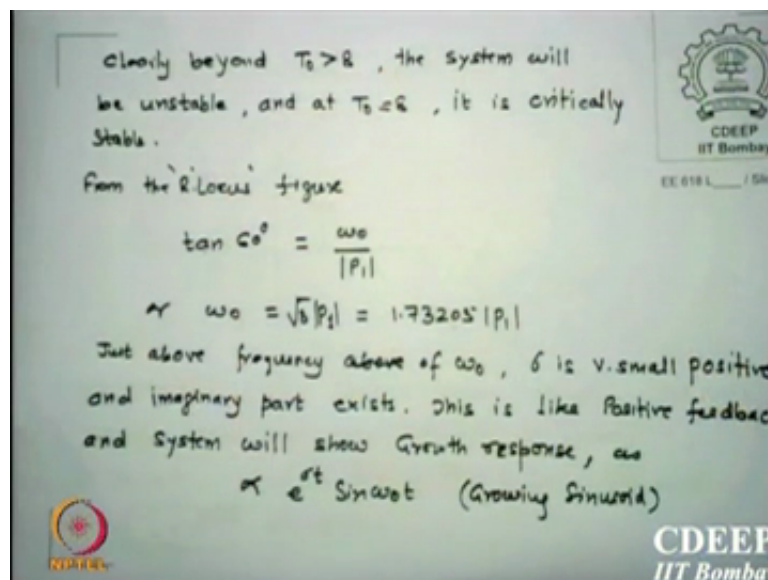 Clearly beyond T₀ > 8 , the System will
be unstable , and at T₀ = 8 , it is critically
Stable.
From the 'R Locus' figure
tan 60° = ω₀ / |P₁|
or ω₀ = √3 |P₁| = 1.73205 |P₁|
Just above frequency above of ω₀ , σ is v. small positive
and imaginary part exists. This is like Positive feedbac
and System will show Growth response, as
∝ e^σt Sin ω₀t (Growing Sinusoid)
CDEEP
IIT Bombay
EE 618 L____ / Sli
NPTEL
CDEEP
IIT Bombay